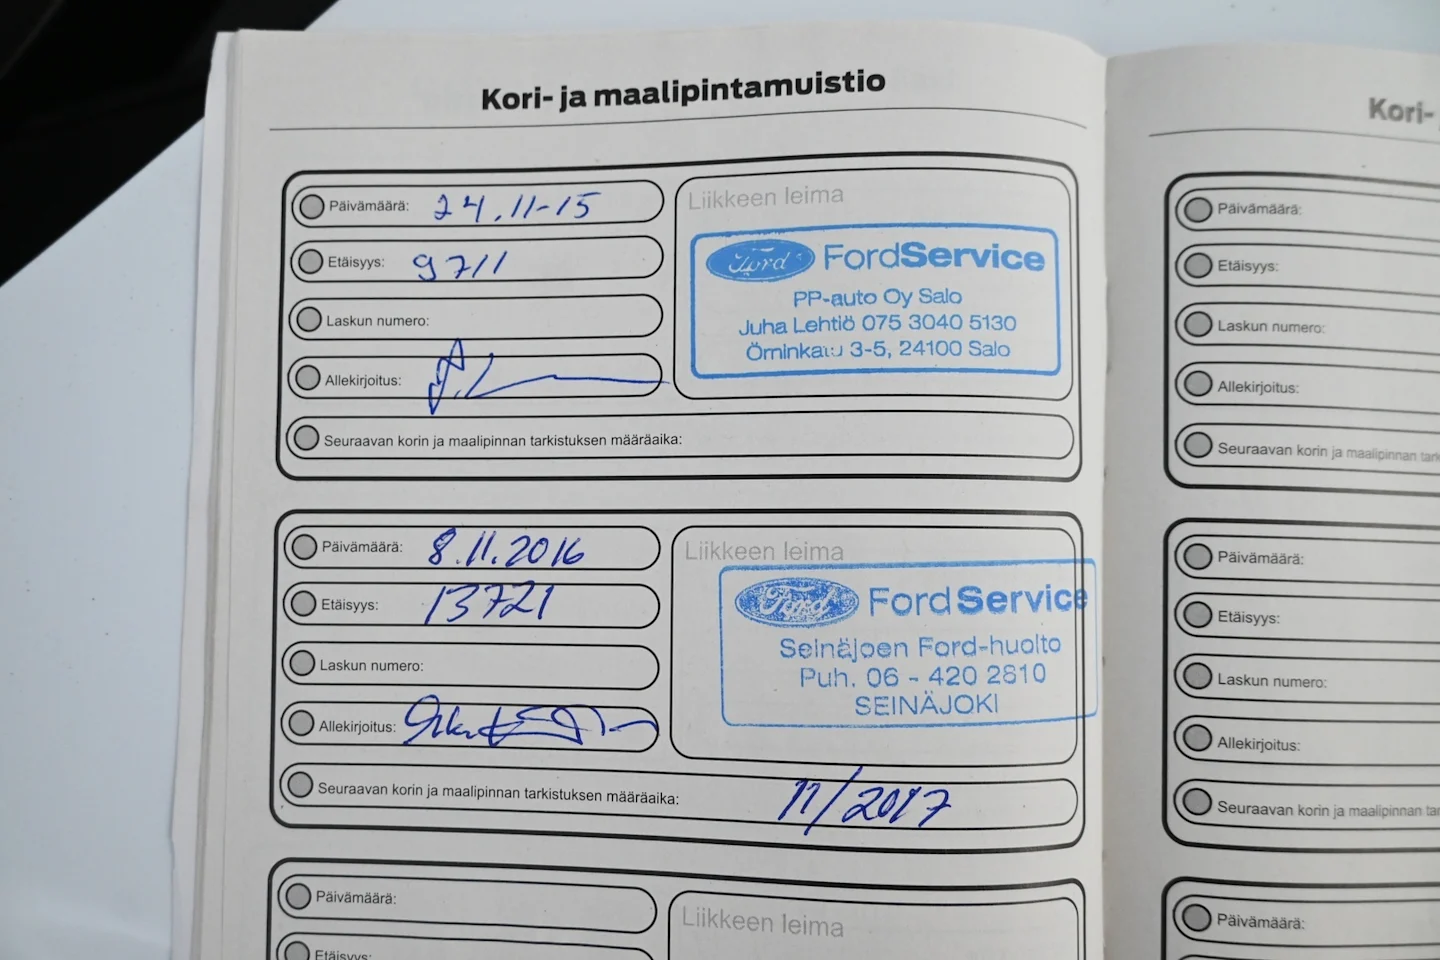 Kori- ja maalipintamuistio
Päivämäärä: 24.11-15
Etäisyys: 9711
Laskun numero:
Allekirjoitus:
Seuraavan korin ja maalipinnan tarkistuksen määräaika:
Liikkeen leima
Ford FordService
PP-auto Oy Salo
Juha Lehtiö 075 3040 5130
3-5, 24100 Salo
Päivämäärä: 8.11.2016
Etäisyys: 13721
Laskun numero:
Allekirjoitus:
Seuraavan korin ja maalipinnan tarkistuksen määräaika: 11/2017
Liikkeen leima
Ford FordService
Seinäjoen Ford-huolto
Puh. 06 - 420 2810
SEINÄJOKI
Päivämäärä:
Etäisyys:
Liikkeen leima
Kori-
Päivämäärä:
Etäisyys:
Laskun numero:
Allekirjoitus:
Seuraavan korin ja maalipinnan
Päivämäärä:
Etäisyys:
Laskun numero:
Allekirjoitus:
Seuraavan korin ja maalipinnan
Päivämäärä: